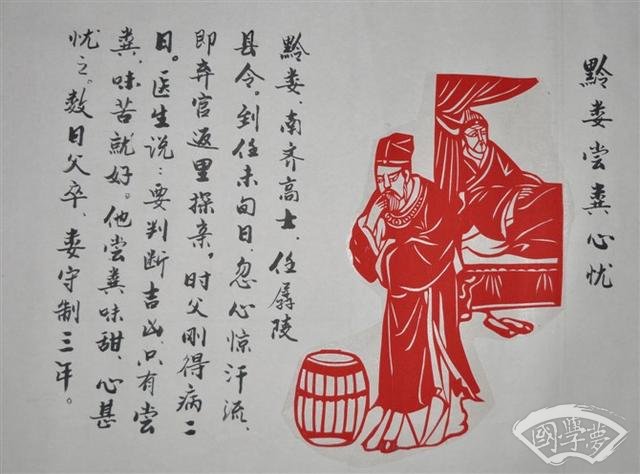 黔娄尝粪心忧
黔娄、南齐高士、任孱陵
县令。到任未旬日、忽心惊汗流、
即弃官返里探亲。时父刚得病二
日。医生说：要判断吉凶、只有尝
粪、味苦就好。他尝粪味甜、心甚
忧之。数日父卒、娄守制三年。
國學夢